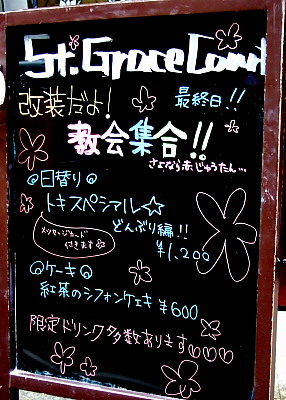 St.Grace Court
改装だよ!
最終日!!
教会集合!!
さよなら赤じゅうたん…
◎日替り◎
トキスペシャル☆
どんぶり編!!
メッセージカード
付きます
¥1,200
◎ケーキ◎
紅茶のシフォンケェキ ¥600
限定ドリンク多数あります♡♡♡